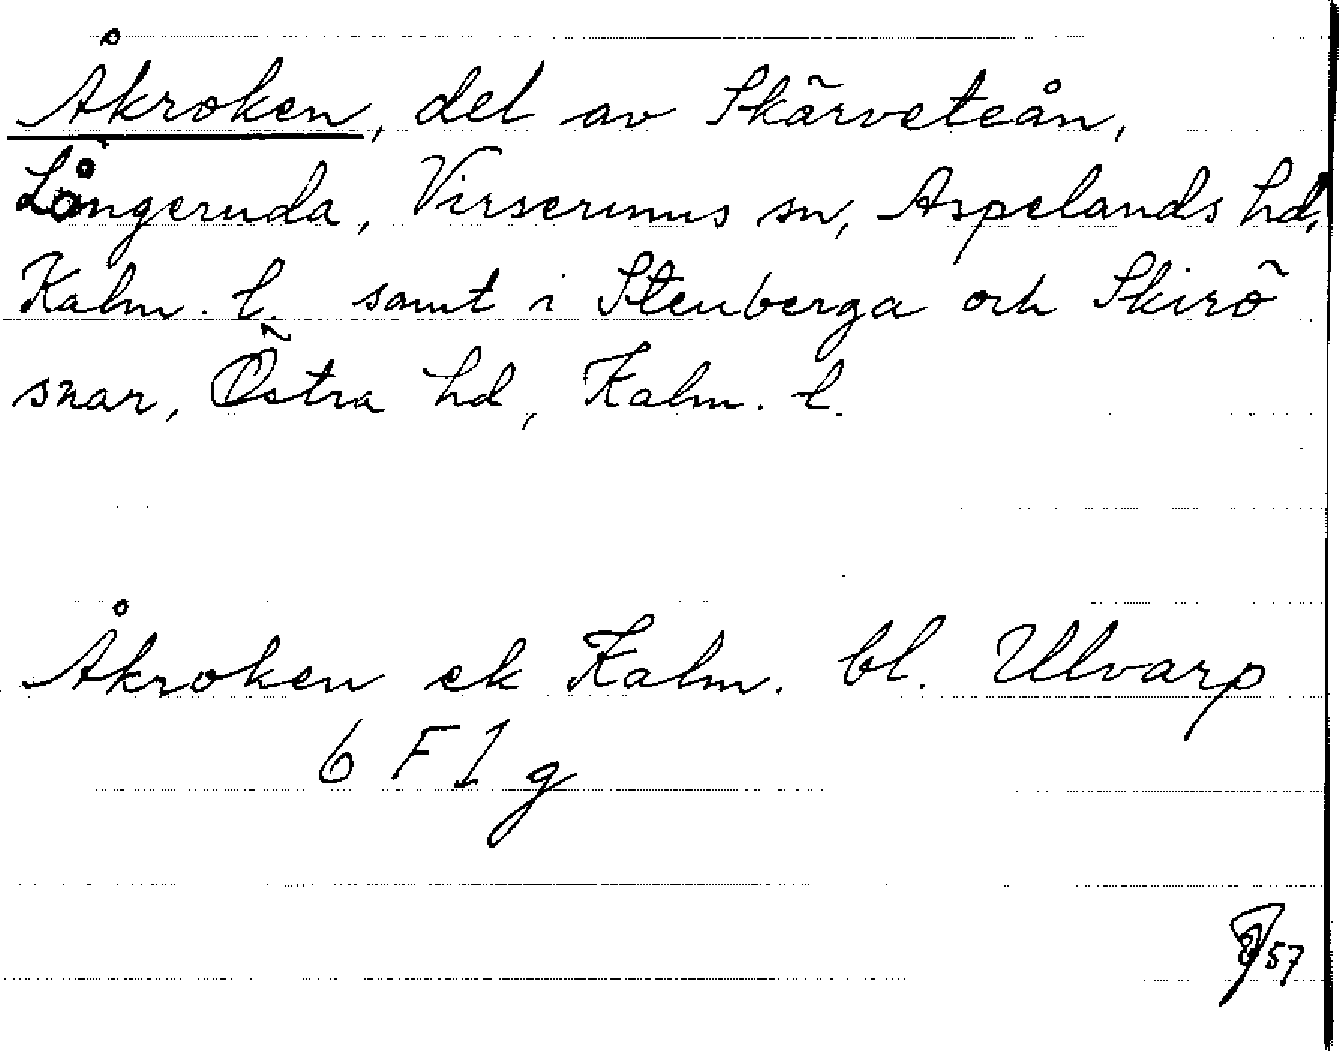 Åkroken, del av Skärveteån,
Långeruda, Virserums sn, Aspelands hd,
Kalm. l. samt i Stenberga och Skirö
snar, Östra hd, Kalm. l.
Åkroken ek Kalm. bl. Ulvarp
6 F 1 g
57